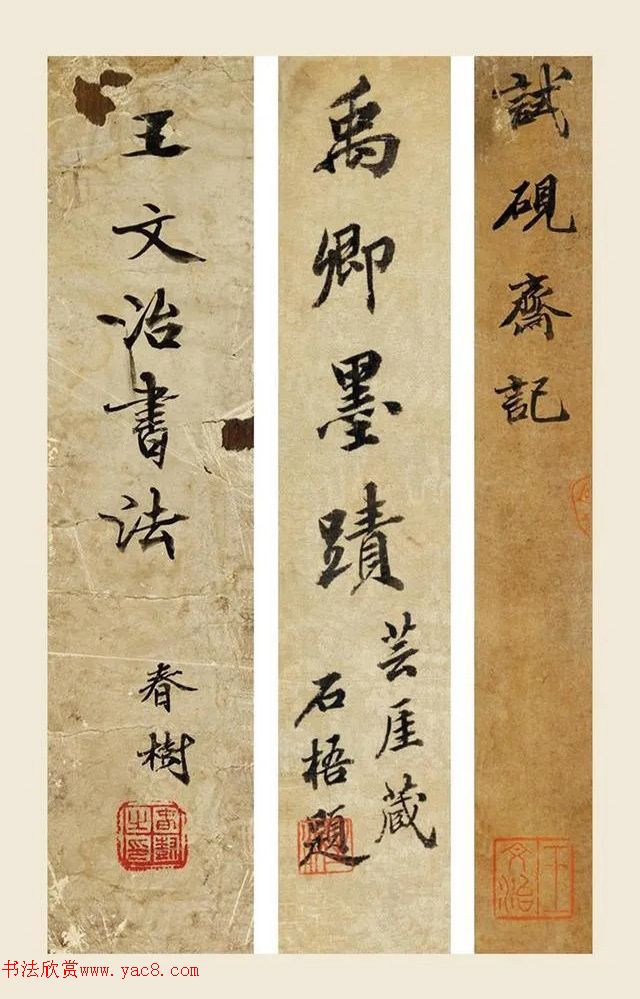 試硯齋記
王文治
禹卿墨蹟
芸厓藏
石梧題
王文治書法
春樹
春樹之印
书法欣赏www.yac8.com